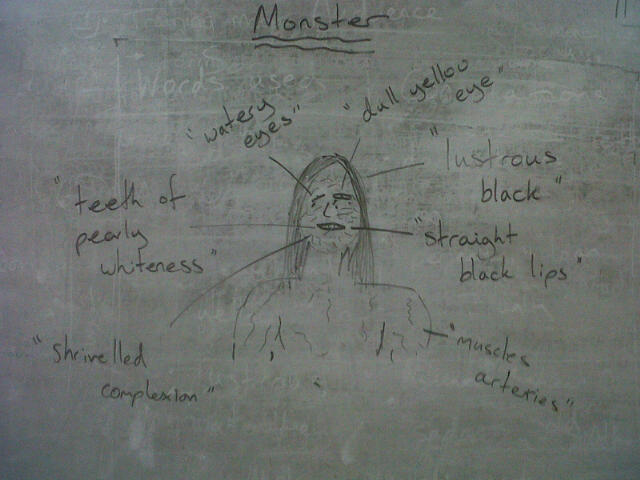 Monster
"watery
eyes"
"dull yellow
eye"
"lustrous
black"
"teeth of
pearly
whiteness"
"straight
black lips"
"shrivelled
complexion"
"muscles
arteries"
Words used